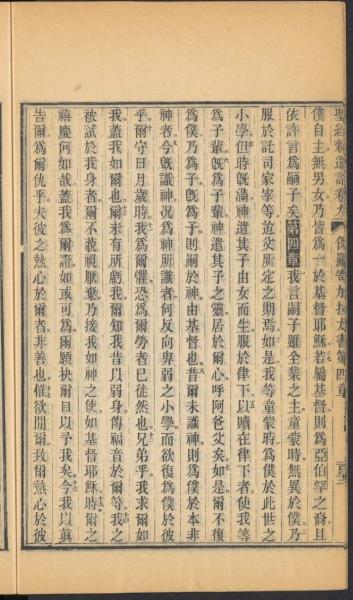 僕自主無男女乃皆為一於基督耶穌若屬基督則為亞伯罕之裔且
依許言為嗣子矣第四章我言嗣子雖全業之主童蒙時無異於僕乃
服於託司家宰等迨父所定之期焉如是我等童蒙時為僕於此世之
小學但時既滿神遣其子由女而生服於律下以贖在律下者使我等
為子輩既為子輩神遣其子之靈居於爾心呼阿爸父矣如是爾不復
為僕乃為子既為子則嗣於神由基督也昔爾未識神則為僕於本非
神者今既識神況為神所識者何反向卑弱之小學而欲復為僕於彼
乎爾守日月歲時我為爾懼恐為爾勞者已徒然也兄弟乎我求爾如
我蓋我如爾也爾未有所虧我爾知我昔以弱身傳福音於爾等我之
被試於我身者爾不藐視厭棄乃接我如神之使如基督耶穌時爾之
禧慶何如哉蓋我為爾證如或可為爾願抉爾目以予我矣今我以真
告爾為爾仇乎夫彼之熱心於爾者非善也惟欲間爾致爾熱心於彼